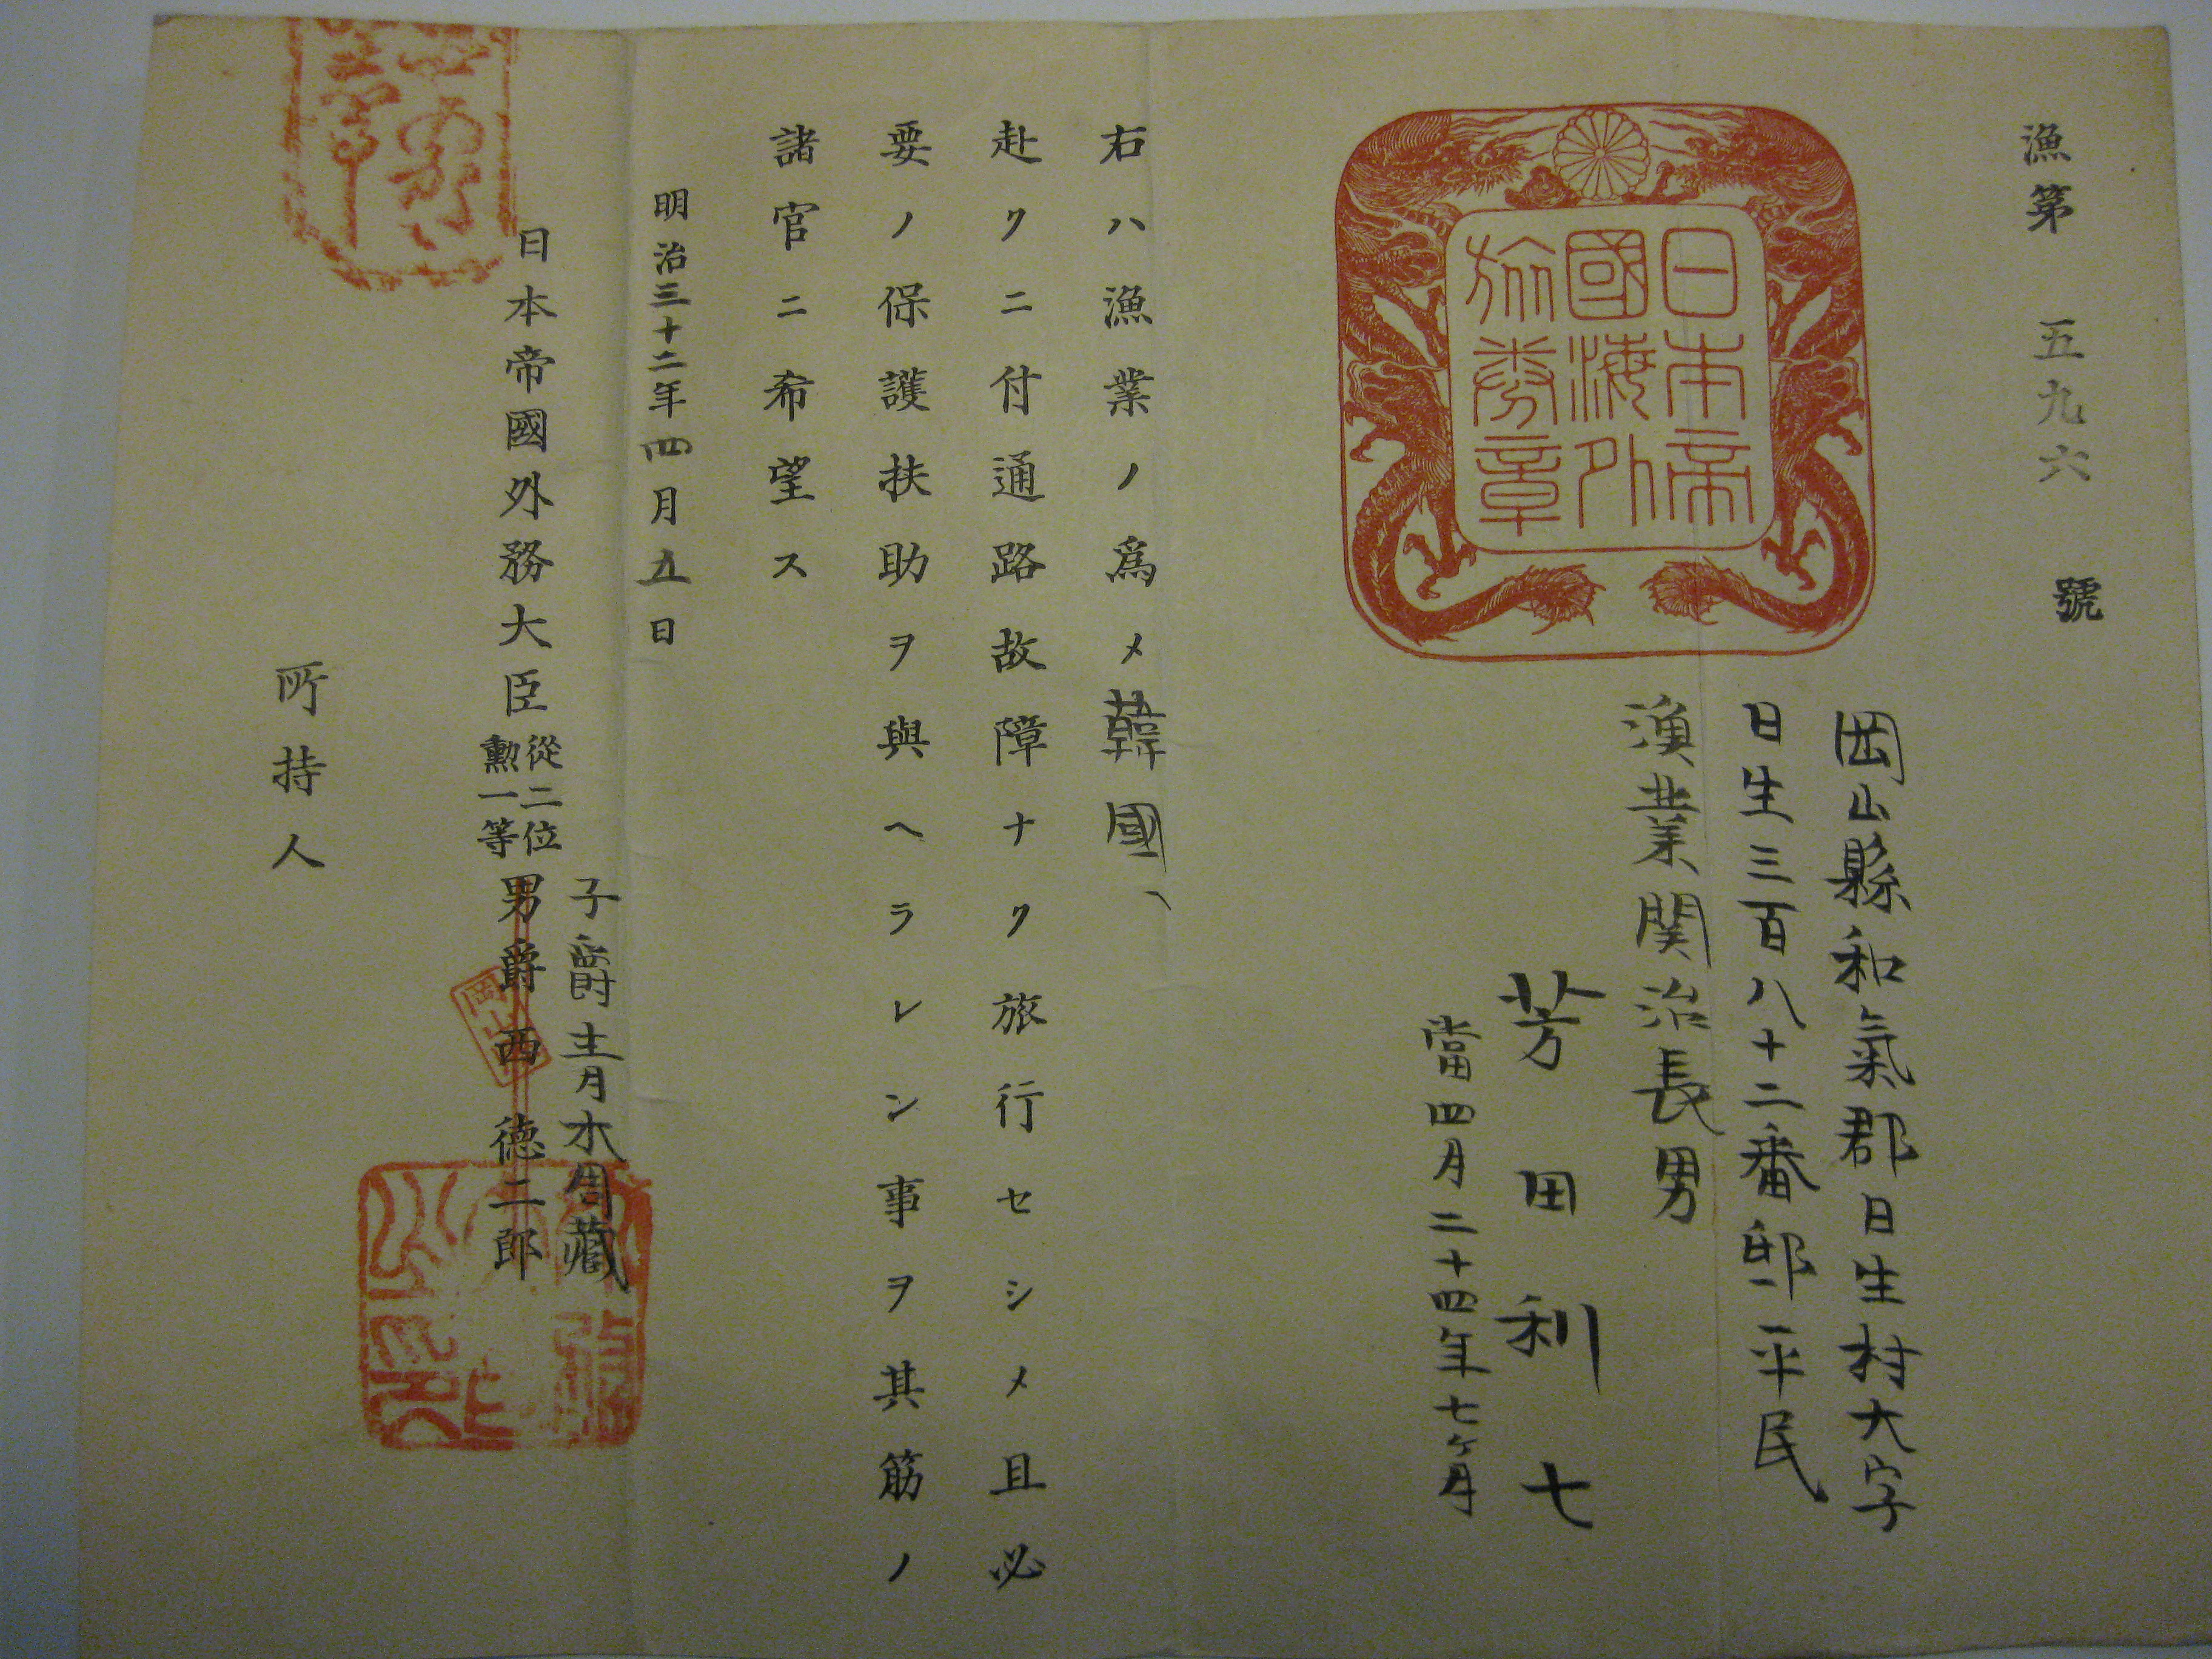 漁第五九六號
日本帝
國海外
旅券章
岡山縣和氣郡日生村大字
日生三百八十二番邸平民
漁業関治長男
芳田利七
當四月二十四年七ヶ月
右ハ漁業ノ爲メ韓國ヘ
赴クニ付通路故障ナク旅行セシメ且必
要ノ保護扶助ヲ與ヘラレン事ヲ其筋ノ
諸官ニ希望ス
明治三十二年四月五日
日本帝國外務大臣從二位勲一等
子爵青木周藏
男爵西徳二郎
岡山
所持人